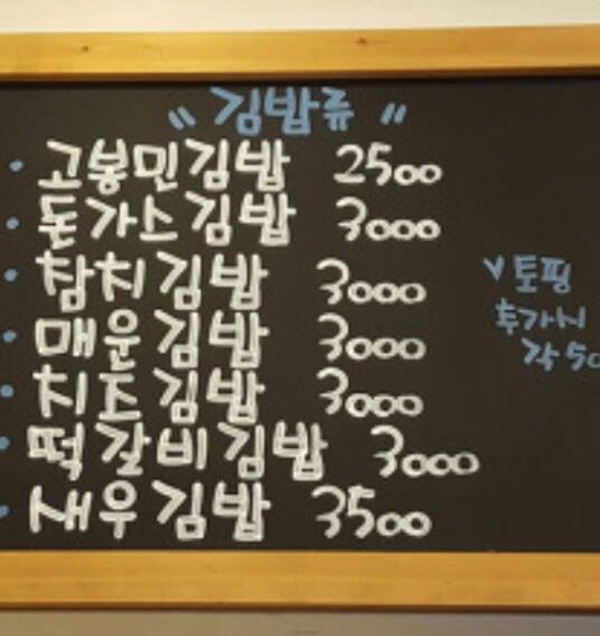 " 김밥류 "
· 고봉민김밥 2500
· 돈가스김밥 3000
· 참치김밥 3000
· 매운김밥 3000
· 치즈김밥 3000
· 떡갈비김밥 3000
· 새우김밥 3500
v 토핑
추가시
각 50